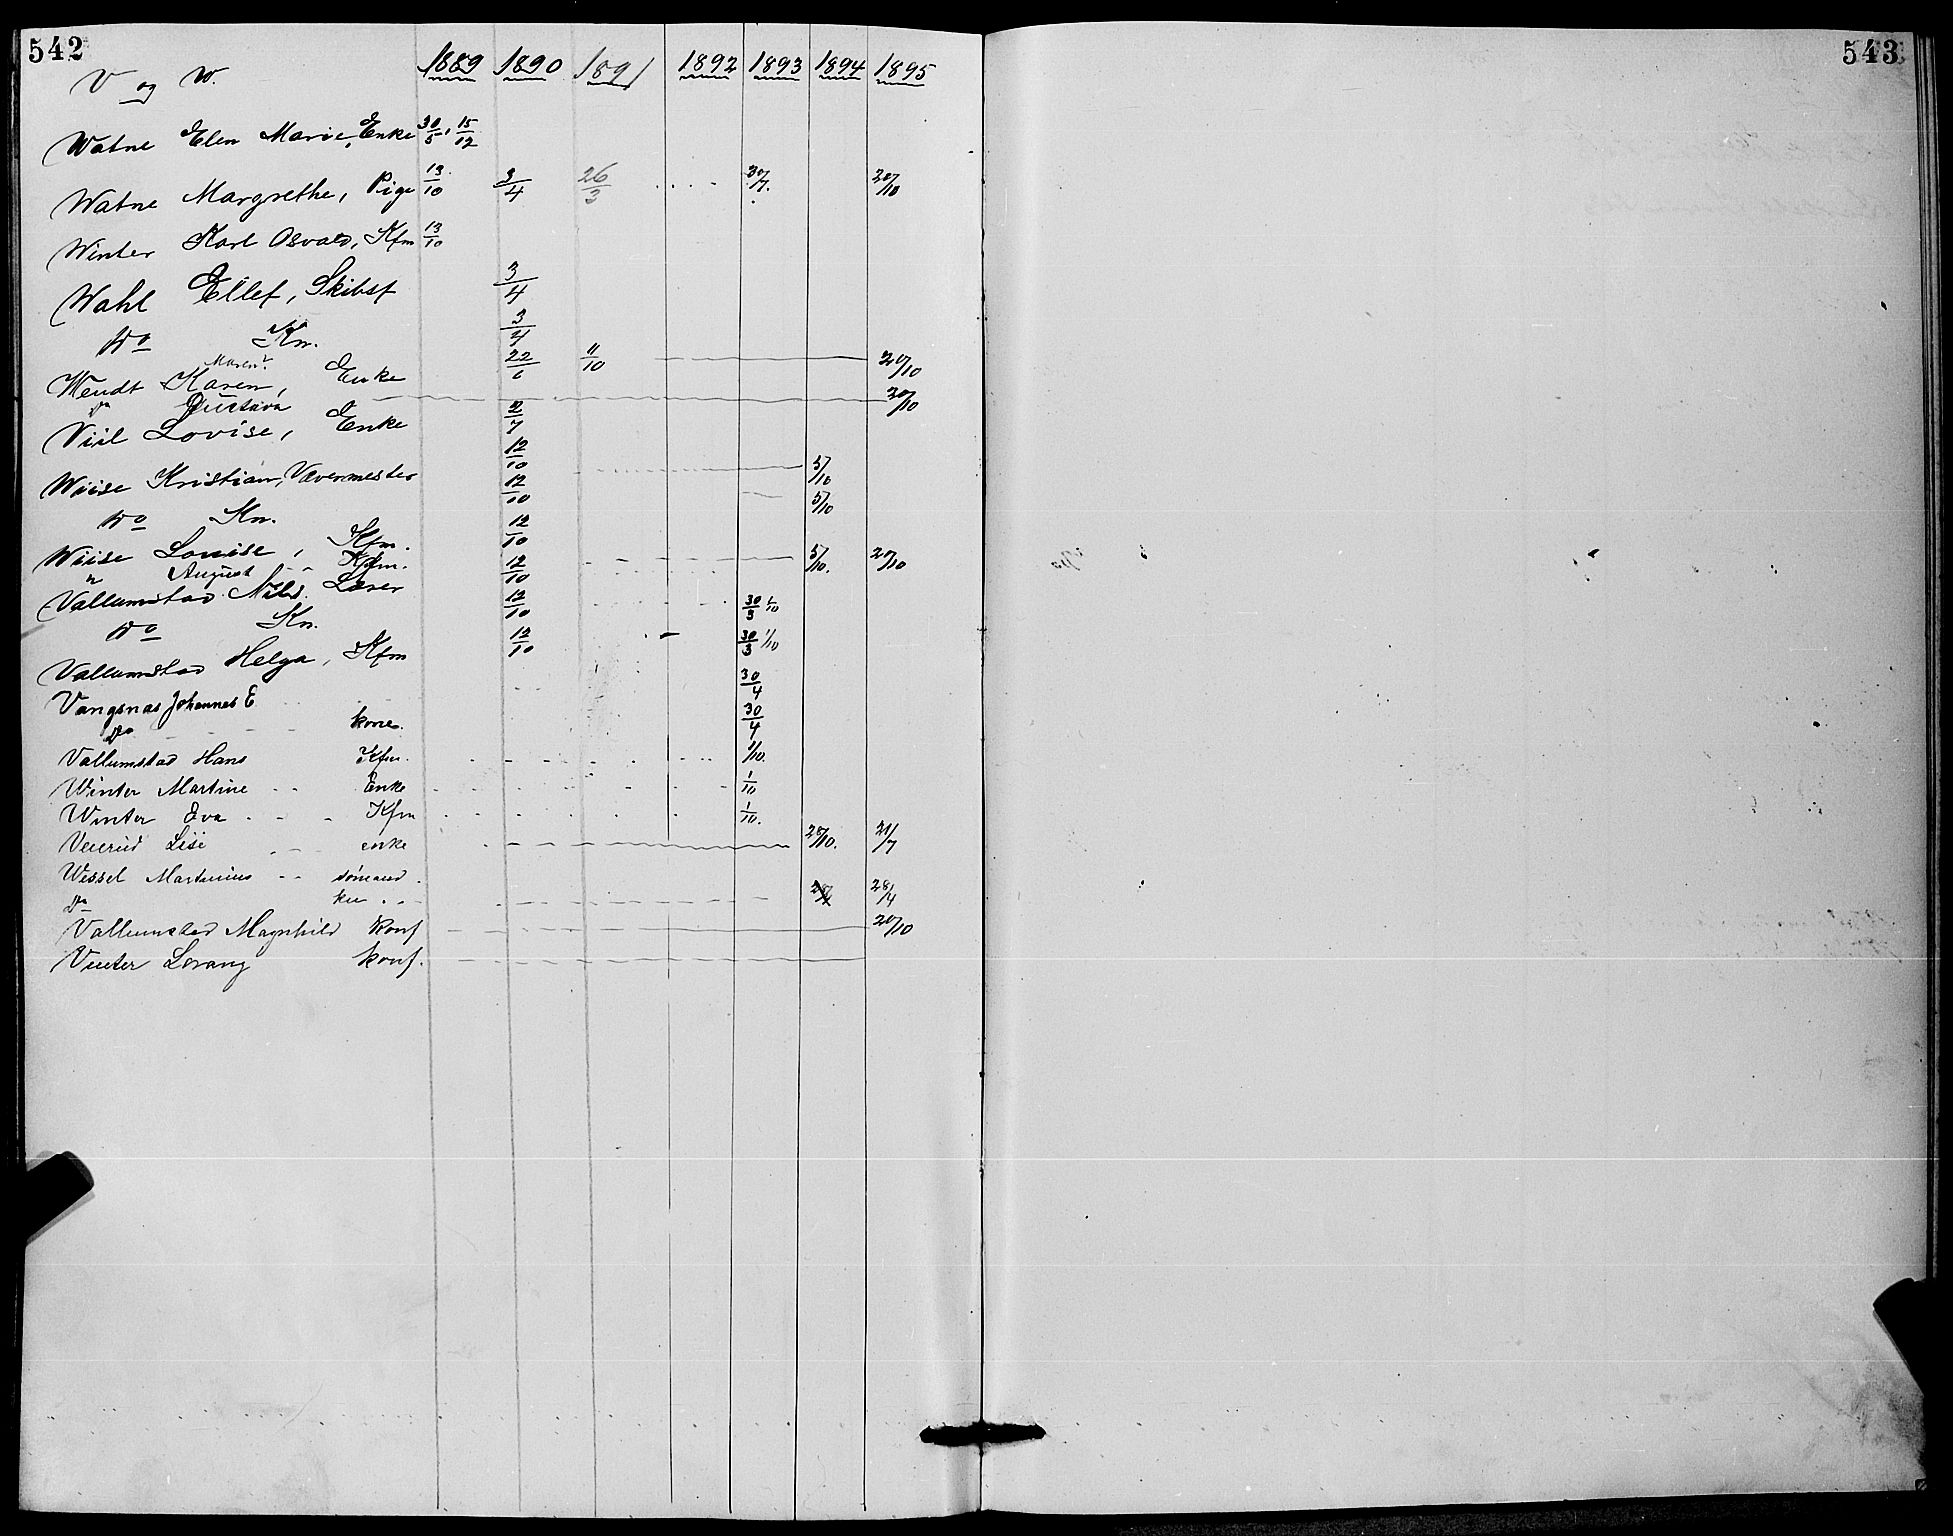 542
V og W. 1889 1890 1891 1892 1893 1894 1895
Watne Elen Marie, Enke 30/5, 15/12
Watne Margrethe, Pige 13/10 3/4 26/3 .... 30/7. 20/10
Winter Karl Osvald, Kfm 13/10
Wahl Ellef, Skibsf 3/4
Do Kn. 3/4
Maren?
Wendt Karen, Enke 22/6 11/10 20/10
Do Gustava 20/10
Viil Lovise, Enke 2/7
Wiise Kristian, Vævermester 12/10 5/10
Do Kn. 12/10 5/10
Wiise Louise, Kfm. 12/10
" August - - Kfm. 5/10. 20/10
Vallumstad Nils. Lærer 12/10 30/3 1/10
Do Kn. 12/10 30/3 1/10
Vallumstad Helga, Kfm 12/10
Vangsnas Johannes E 30/4
Do kone. 30/4
Vallumstad Hans Kfm. 1/10.
Winter Martine - - Enke 1/10
Winter Eva - - - Kfm 1/10.
Lise - - enke 28/10. 21/7
Wessel Martinius - - sømand.
Do kn 28/4 28/4
Vallumstad Magnhild konf 20/10
Vinter Lorang konf.
543